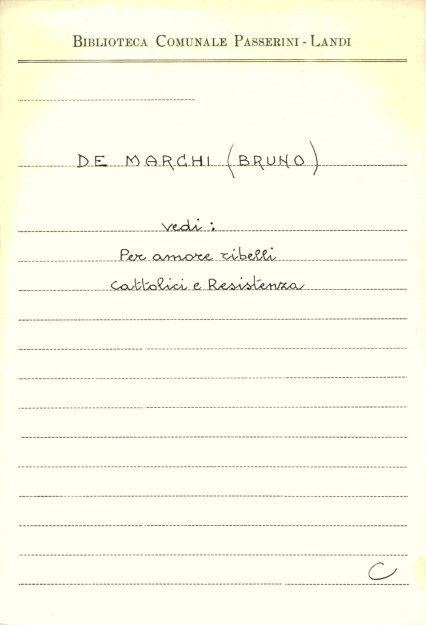 BIBLIOTECA COMUNALE PASSERINI - LANDI
DE MARCHI (BRUNO)
vedi:
Per amore ribelli
Cattolici e Resistenza
C